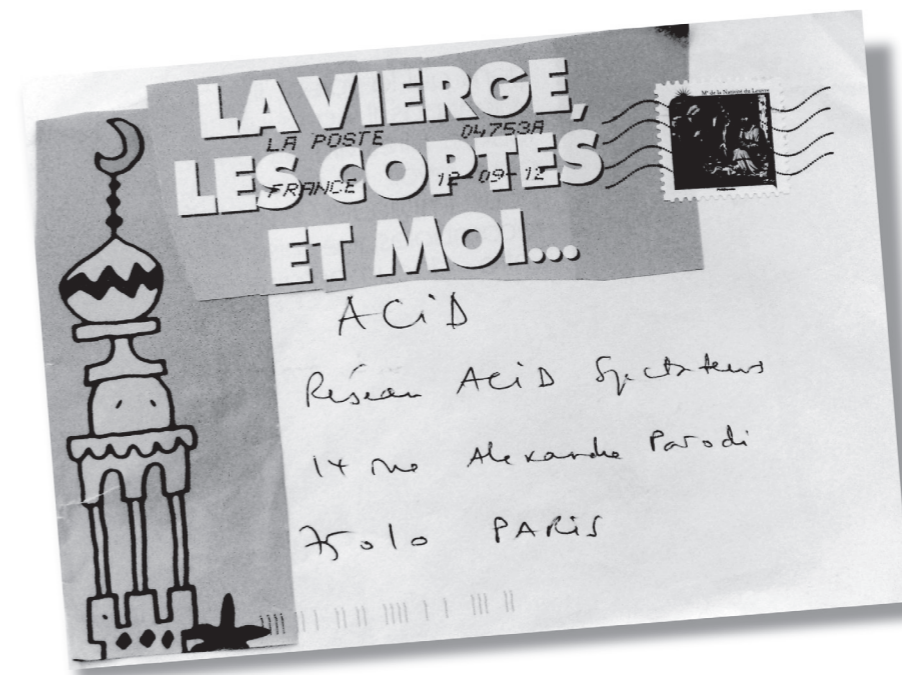 LA VIERGE,
LES COPTES
ET MOI...
LA POSTE 04753A
FRANCE 12-09-12
Mé de la Nativité du Louvre
ACiD
Réseau ACiD Spectateurs
14 rue Alexandre Parodi
75010 PARiS